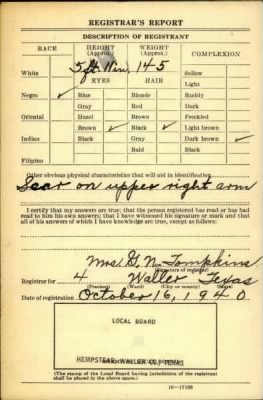 REGISTRAR'S REPORT
DESCRIPTION OF REGISTRANT
RACE HEIGHT (Approx.) WEIGHT (Approx.) COMPLEXION
White 5 ft 11 in. 145 Sallow
EYES HAIR Light
Negro ✓ Blue Blonde Ruddy
Gray Red Dark
Oriental Hazel Brown Freckled
Brown ✓ Black ✓ Light brown
Indian Black Gray Dark brown ✓
Bald Black
Filipino
Other obvious physical characteristics that will aid in identification
Scar on upper right arm
I certify that my answers are true; that the person registered has read or has had read to him his own answers; that I have witnessed his signature or mark and that all of his answers of which I have knowledge are true, except as follows:
Mrs G. N. Tompkins
(Signature of registrar)
Registrar for 4 Waller Texas
(Precinct) (Ward) (City or county) (State)
Date of registration October 16, 1940
LOCAL BOARD
HEMPSTEAD, WALLER CO., TEXAS
(The stamp of the Local Board having jurisdiction of the registrant shall be placed in the above space.)